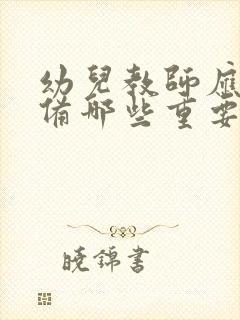 幼兒教師應
備哪些重要
曉錦書